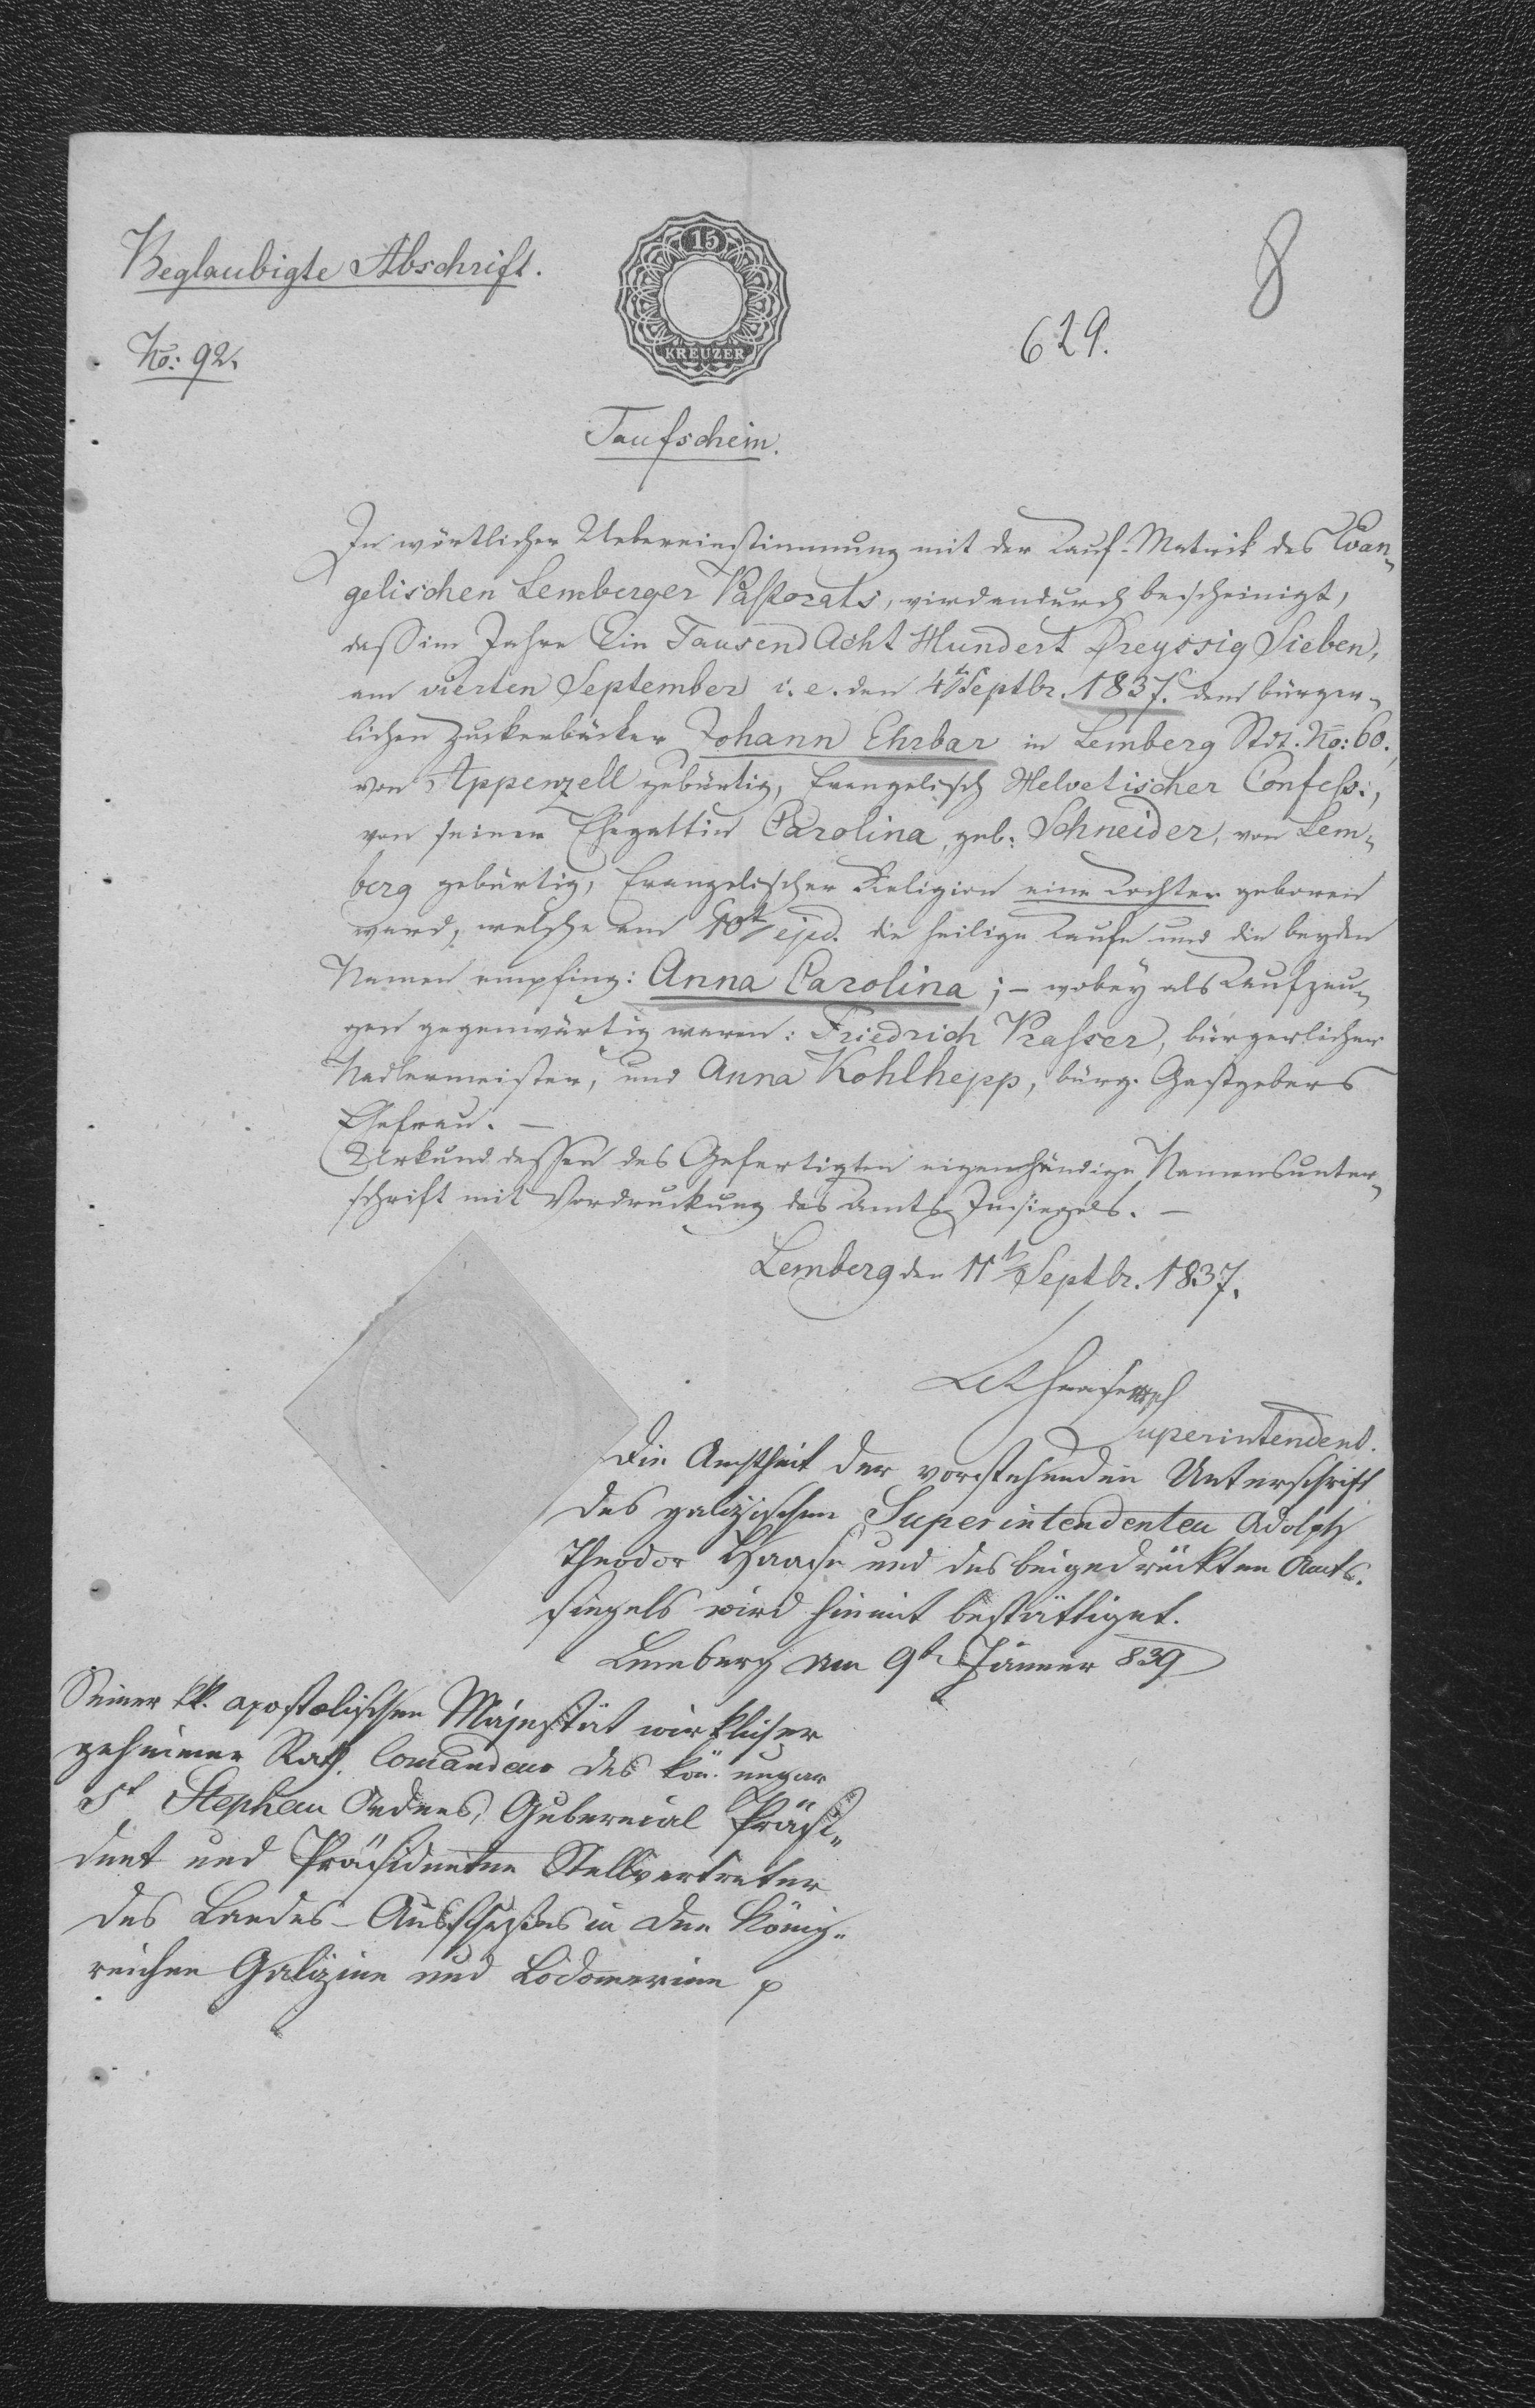 8
Beglaubigte Abschrift.
15
KREUZER
629.
No: 92.
Taufschein.
In wörtlicher Uebereinstimmung mit der Tauf-Matrik des Evan-
gelischen Lemberger Pastorats, wird andurch bescheinigt,
daß im Jahre Ein Tausend Acht Hundert Dreyssig Sieben,
am vierten September i. e. den 4t Septbr. 1837. dem bürger-
lichen Zuckerbäcker Johann Ehrbar in Lemberg Stdt. No: 60.,
von Appenzell gebürtig, Evangelisch Helvetischer Confess:,
von seiner Ehegattin Carolina, geb: Schneider, von Lem-
berg gebürtig, Evangelischer Religion eine Tochter geboren
ward, welche am 10t ejsd. die heilige Taufe und die beyden
Namen empfing: Anna Carolina; – wobey als Taufzeu-
gen gegenwärtig waren: Friedrich Prasser, bürgerlicher
Nadlermeister, und Anna Kohlhepp, bürg. Gastgebers
Ehefrau. –
Urkund dessen des Gefertigten eigenhändige Namensunter-
schrift mit Vordruckung des Amts-Insiegels. –
Lemberg den 11t Septbr. 1837.
Superintendent.
Die Aechtheit der vorstehenden Unterschrift
des galizischen Superintendenten Adolph
Theodor Haase und des beigedrückten Amts-
siegels wird hiemit bestättiget.
Lemberg am 9t Jänner 839
Seiner kk. apostolischen Majestät wirklicher
geheimer Rath, Comandeur des kön. ungar
St Stephan Ordens, Gubernial Präsi-
dent und Präsidenten Stellvertreter
des Landes-Ausschußes in den König-
reichen Galizien und Lodomerien